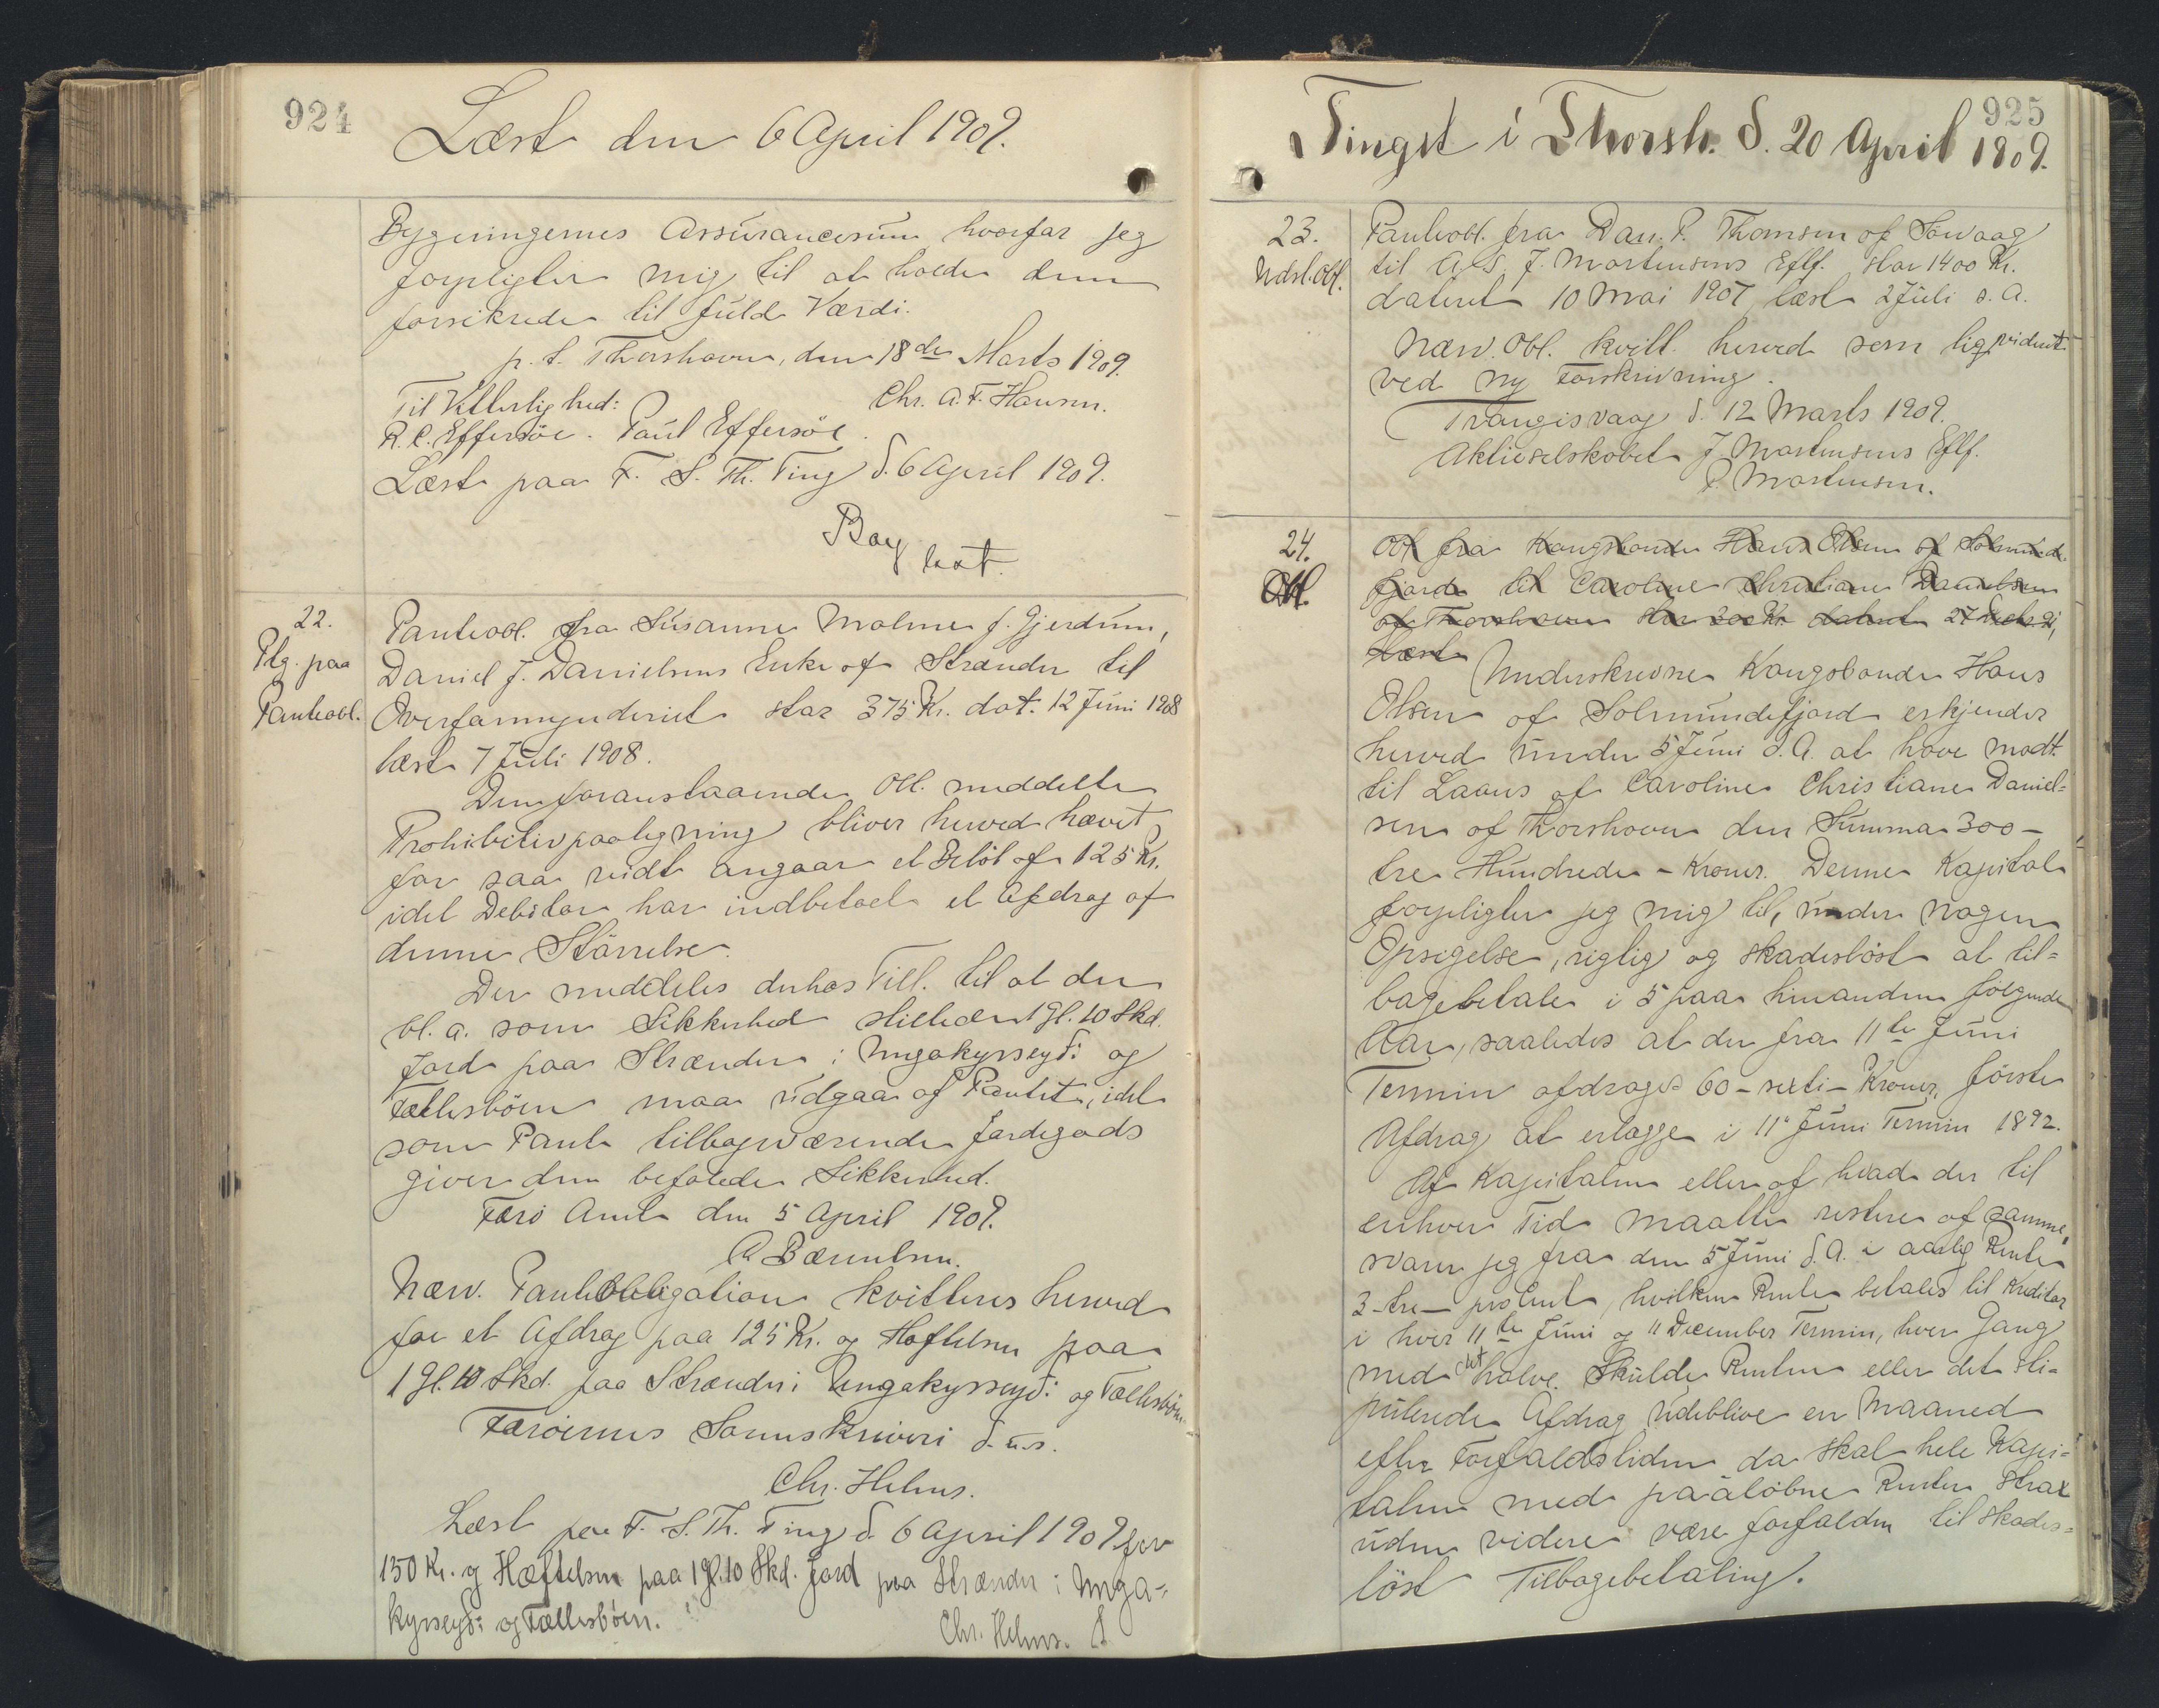 924
Læst den 6 April 1909.
Bygningernes Assurancesum hvorfor jeg
forpligter mig til at holde dem
forsikrede til fuld Værdi.
p. t. Thorshavn, den 18de Marts 1909.
Til Vitterlighed: Chr. A. F. Hansen.
R. C. Effersöe. Poul Effersöe.
Læst paa F. S. Th. Ting d. 6 April 1909.
Bay
kst.
22.
Plg. paa
Panteobl.
Panteobl. fra Susanne Malene f. Gjerdum,
Daniel J. Danielsens Enke af Strænder til
Overformynderiet stor 375 Kr. dat. 12 Juni 1908
læst 7 Juli 1908.
Den foranstaaende Obl. meddelte
Prohibitivpaategning bliver herved hævet
for saa vidt angaar et Beløb af 125 Kr.
idet Debitor har indbetalt et Afdrag af
denne Störrelse.
Der meddeles derhos Till. til at den
bl. a. som Sikkerhed stillede 1 Gl. 10 Skd.
Jord paa Strænder i Ungakyrseyði og
Fællesböen maa udgaa af Pantet, idet
som Pant tilbageværende Jordegods
giver den befalede Sikkerhed.
Færö Amt den 5 April 1909.
C Bærentsen.
Næv. Panteobligation kvitteres herved
for et Afdrag paa 125 Kr. og Hæftelsen paa
1 Gl. 10 Skd. paa Strænder i Ungakyrseyði og Fællesböen
Færöernes Sorenskriveri d. u. s.
Chr. Helms.
Læst paa F. S. Th. Ting d. 6 April 1909 for
150 Kr. og Hæftelsen paa 1 Gl. 10 Skd. Jord paa Strænder i Unga-
kyrseyði og Fællesböen.
Chr. Helms.
925
Tingst i Thorsh. d. 20 April 1909.
23.
Udsl. Obl.
Panteobl. fra Dan. P. Thomsen af Sörvaag
til A/S J. Mortensens Eftf. stor 1400 Kr.
dateret 10 Mai 1907, læst 2 Juli s. A.
Næv. Obl. kvitt. herved som liqvideret
ved ny Forskrivning.
Trangisvaag d. 12 Marts 1909.
Aktieselskabet J. Mortensens Eftf.
P. Mortensen.
24.
Obl.
Obl fra Kongsbonde Hans Olsen af Solmunde-
fjord til Caroline Christiane Danielsen
af Thorshavn stor 300 Kr dateret 27
Læst
Underskrevne Kongsbonde Hans
Olsen af Solmundefjord erkjender
herved under 5 Juni d. A. at have modt.
til Laans af Caroline Christiane Daniel-
sen af Thorshavn den Summa 300 –
tre Hundrede – Kroner. Denne Kapital
forpligter jeg mig til, uden nogen
Opsigelse, rigtig og skadeslöst at til-
bagebetale i 5 paa hinanden fölgende
Aar, saaledes at der fra 11te Juni
Termin afdrages 60 – sexti – Kroner, förste
Afdrag at erlægge i 11e Juni Termin 1892.
Af Kapitalen eller af hvad der til
enhver Tid maatte restere af samme,
svarer jeg fra den 5 Juni d. A. i aarlig Rente
3 – tre – procent, hvilken Rente betales til Kreditor
i hver 11te Juni og 11 December Termin, hver Gang
med det halve. Skulde Renten eller det sti-
pulerede Afdrag udeblive en Maaned
efter Forfaldstiden da skal hele Kapi-
talen med paalöbne Renter strax
uden videre være forfalden til skades-
löst Tilbagebetaling.